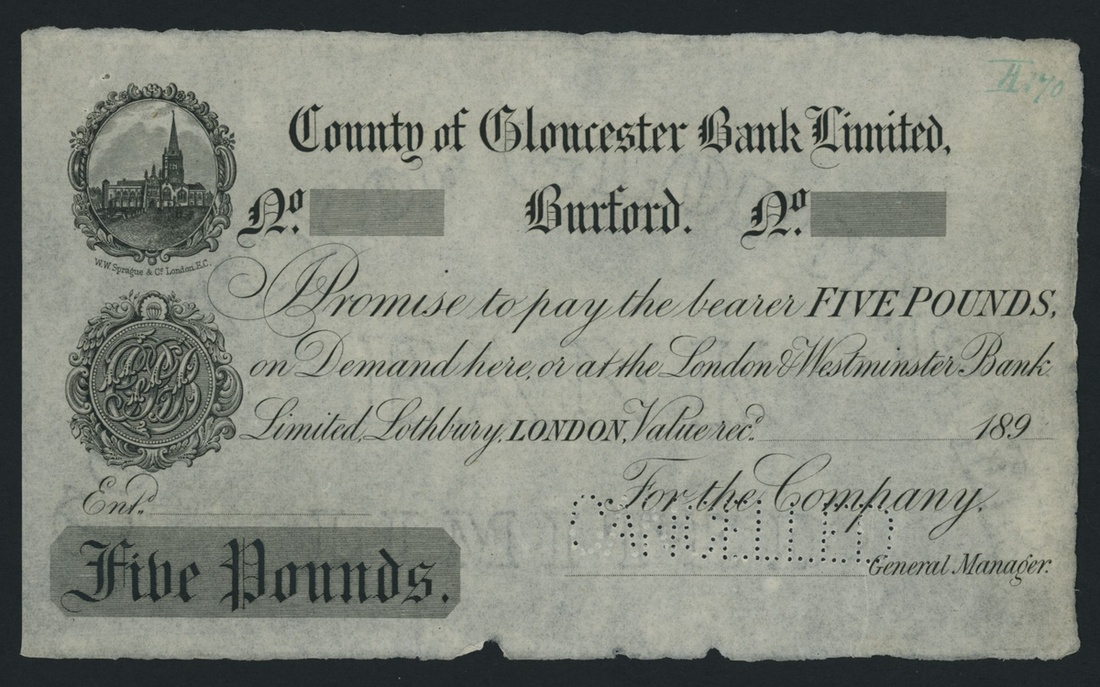 County of Gloucester Bank Limited,
No. Burford. No.
W.W. Sprague & Co. London. E.C.
I Promise to pay the bearer FIVE POUNDS,
on Demand here, or at the London & Westminster Bank
Limited, Lothbury, LONDON, Value recd. 189
Entd.
For the Company.
CANCELLED
General Manager.
Five Pounds.